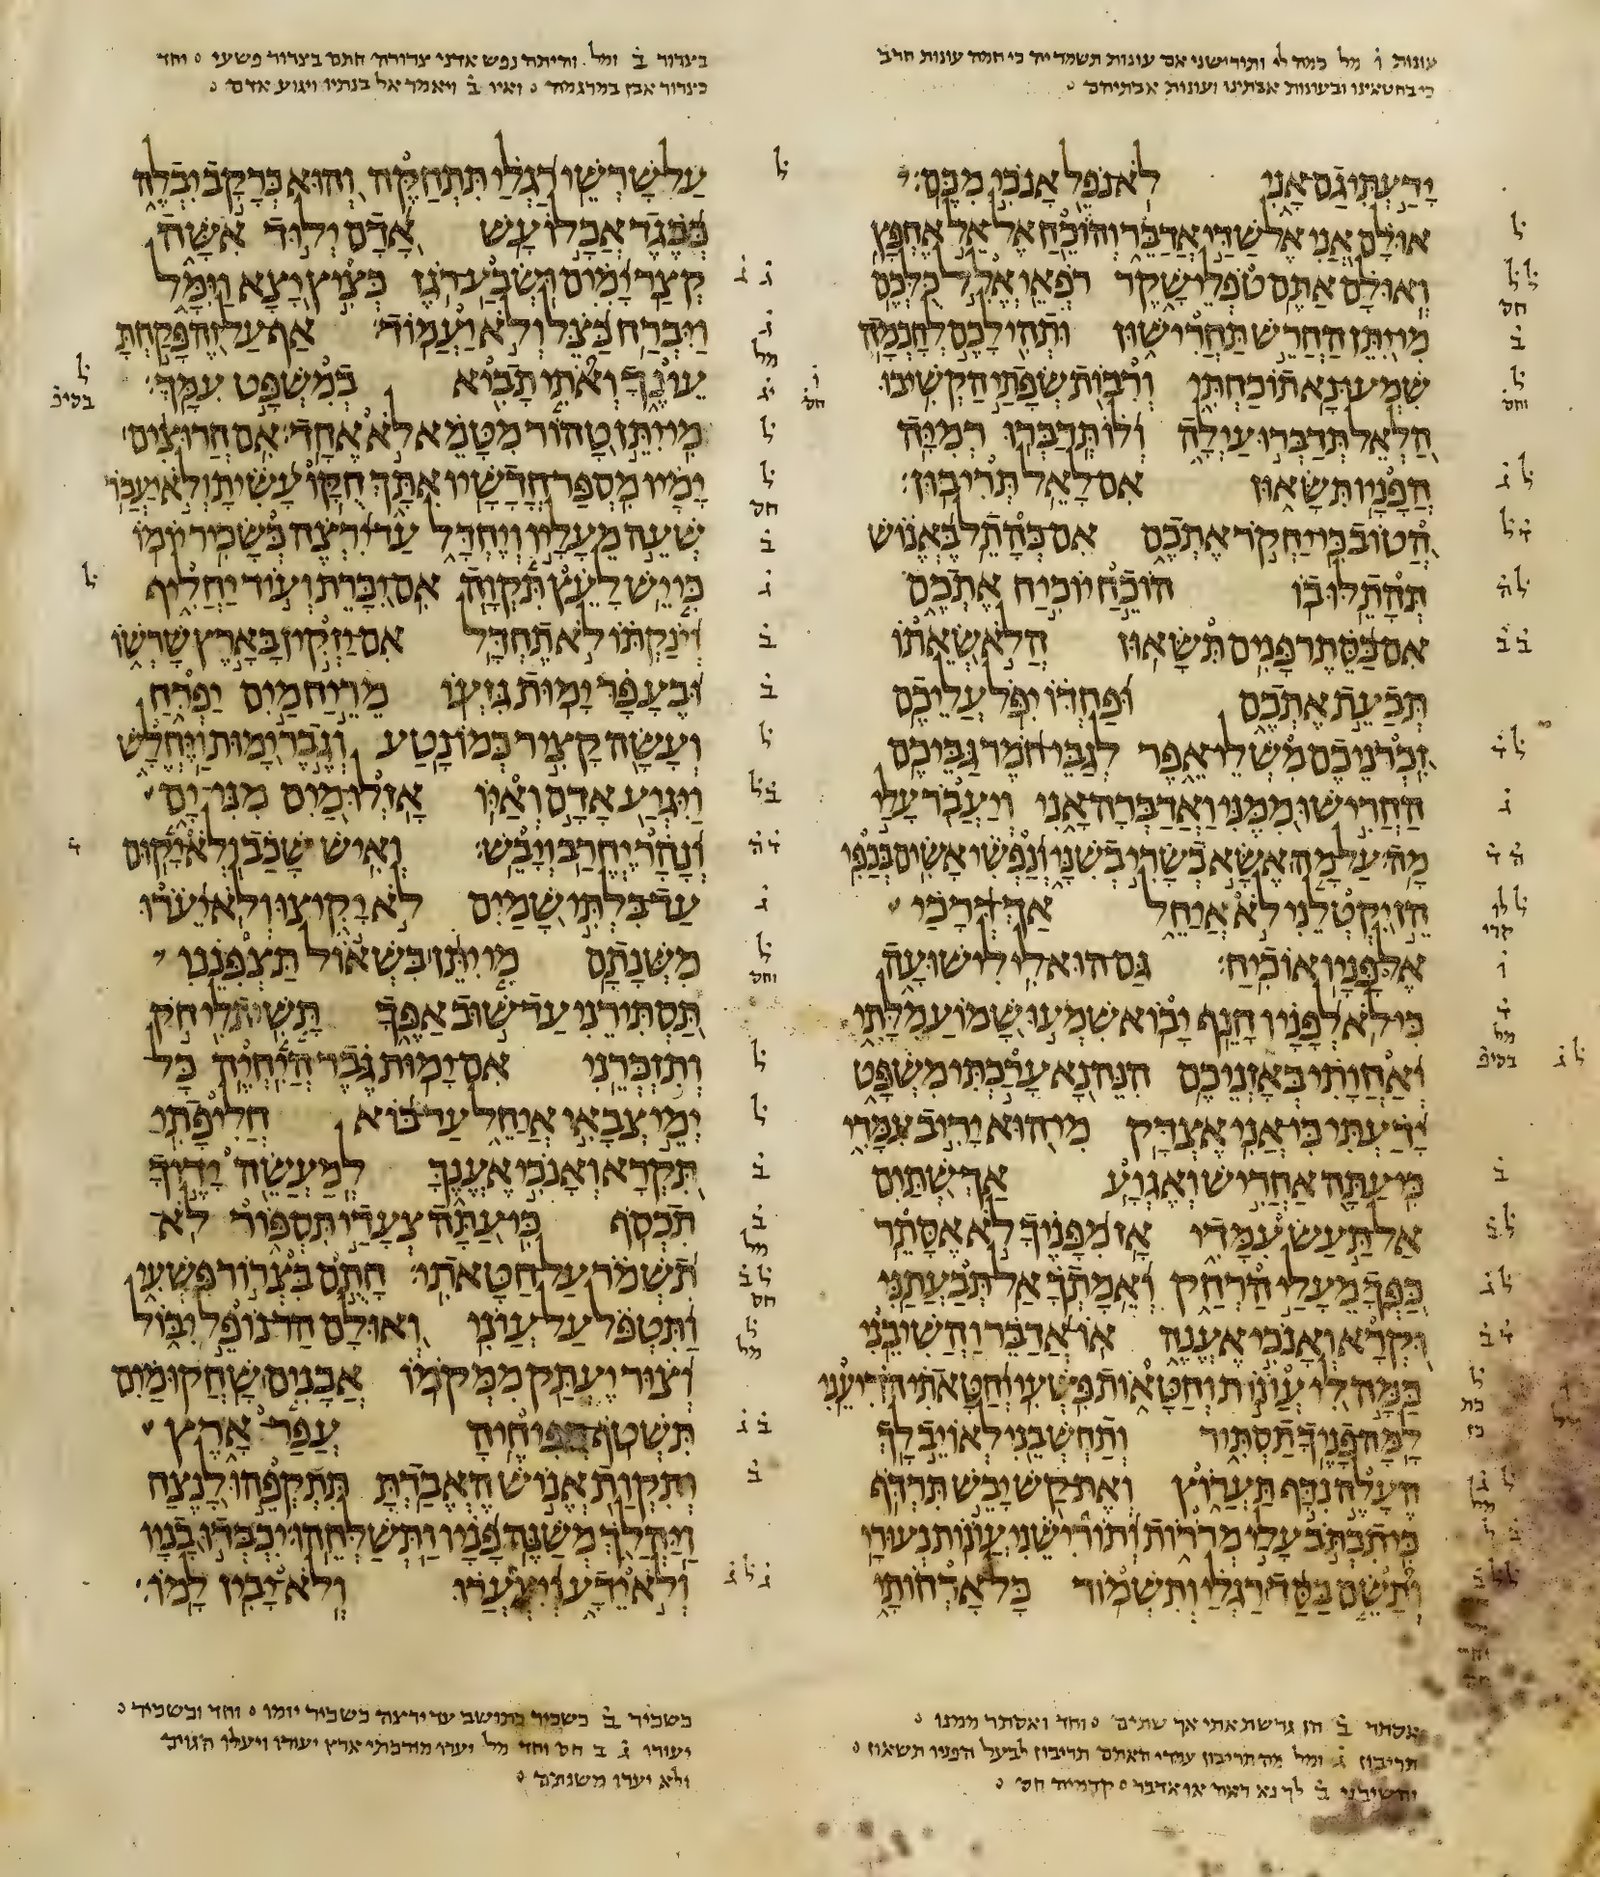 עונות ו̇ מל כמה לי ותורישני אם עונות תשמר יה כי המה עונות חרב
כי בחטאינו ובעונות אבתינו ועונות אבתיהם
ידעתי גם אני לא נפל אנכי מכם
אולם אני אל שדי אדבר והוכח אל אל אחפץ
ואולם אתם טפלי שקר רפאי אלל כלכם
מי יתן החרש תחרישון ותהי לכם לחכמה
שמעו נא תוכחתי ורבות שפתי הקשיבו
הלאל תדברו עולה ולו תדברו רמיה
הפניו תשאון אם לאל תריבון
הטוב כי יחקר אתכם אם כהתל באנוש
תהתלו בו הוכח יוכיח אתכם
אם בסתר פנים תשאון הלא שאתו
תבעת אתכם ופחדו יפל עליכם
זכרניכם משלי אפר לגבי חמר גביכם
החרישו ממני ואדברה אני ויעבר עלי
מה על מה אשא בשרי בשני ונפשי אשים בכפי
הן יקטלני לא איחל אך דרכי
אל פניו אוכיח גם הוא לי לישועה
כי לא לפניו חנף יבוא שמעו שמוע מלתי
ואחותי באזניכם הנה נא ערכתי משפט
ידעתי כי אני אצדק מי הוא יריב עמדי
כי עתה אחריש ואגוע אך שתים
אל תעש עמדי אז מפניך לא אסתר
כפך מעלי הרחק ואמתך אל תבעתני
וקרא ואנכי אענה או אדבר והשיבני
כמה לי עונות וחטאות פשעי וחטאתי הדיעני
למה פניך תסתיר ותחשבני לאויב לך
העלה נדף תערוץ ואת קש יבש תרדף
כי תכתב עלי מררות ותורישני עונות נעורי
ותשם בסד רגלי ותשמור כל ארחותי
אסתר ב̇ הן גרשת אתי אך שתים וחד ואסתר ממנו
תריבון ג̇ ומל מה תריבון עמדי האתם תריבון לבעל הפניו תשאון
והשיבני ב̇ לך נא ראה או אדבר קדמיה חס
בצרור ב̇ ומל והיתה נפש אדני צרורה חתם בצרור פשעי וחד
כצרור אבן במרגמה ואיו ב̇ ויאמר אל בנתיו ויגוע אדם
על שרשי רגלי תתחקה והוא כרקב יבלה
כבגד אכלו עש אדם ילוד אשה
קצר ימים ושבע רגז כציץ יצא וימל
ויברח כצל ולא יעמוד אף על זה פקחת
עינך ואתי תביא במשפט עמך
מי יתן טהור מטמא לא אחד אם חרוצים
ימיו מספר חדשיו אתך חקו עשית ולא יעבר
שעה מעליו ויחדל עד ירצה כשכיר יומו
כי יש לעץ תקוה אם יכרת ועוד יחליף
וינקתו לא תחדל אם יזקין בארץ שרשו
ובעפר ימות גזעו מריח מים יפרח
ועשה קציר כמו נטע וגבר ימות ויחלש
ויגוע אדם ואיו אזלו מים מני ים
ונהר יחרב ויבש ואיש שכב ולא יקום
עד בלתי שמים לא יקיצו ולא יערו
משנתם מי יתן בשאול תצפנני
תסתירני עד שוב אפך תשית לי חק
ותזכרני אם ימות גבר היחיה כל
ימי צבאי איחל עד בוא חליפתי
תקרא ואנכי אענך למעשה ידיך
תכסף כי עתה צעדי תספור לא
תשמר על חטאתי חתם בצרור פשעי
ותטפל על עוני ואולם הר נופל יבול
וצור יעתק ממקמו אבנים שחקו מים
תשטף ספיחיה עפר ארץ
ותקות אנוש האבדת תתקפהו לנצח
ויהלך משנה פניו ותשלחהו יכבדו בניו
ולא ידע ויצערו ולא יבין למו
כשכיר ב̇ כשכיר כתושב עד ירצה כשכיר יומו וחד וכשכיר
יעורו ב חס וחד מל יערו מירכתי ארץ יעורו ויעלו הגוים
ולא יערו משנתם